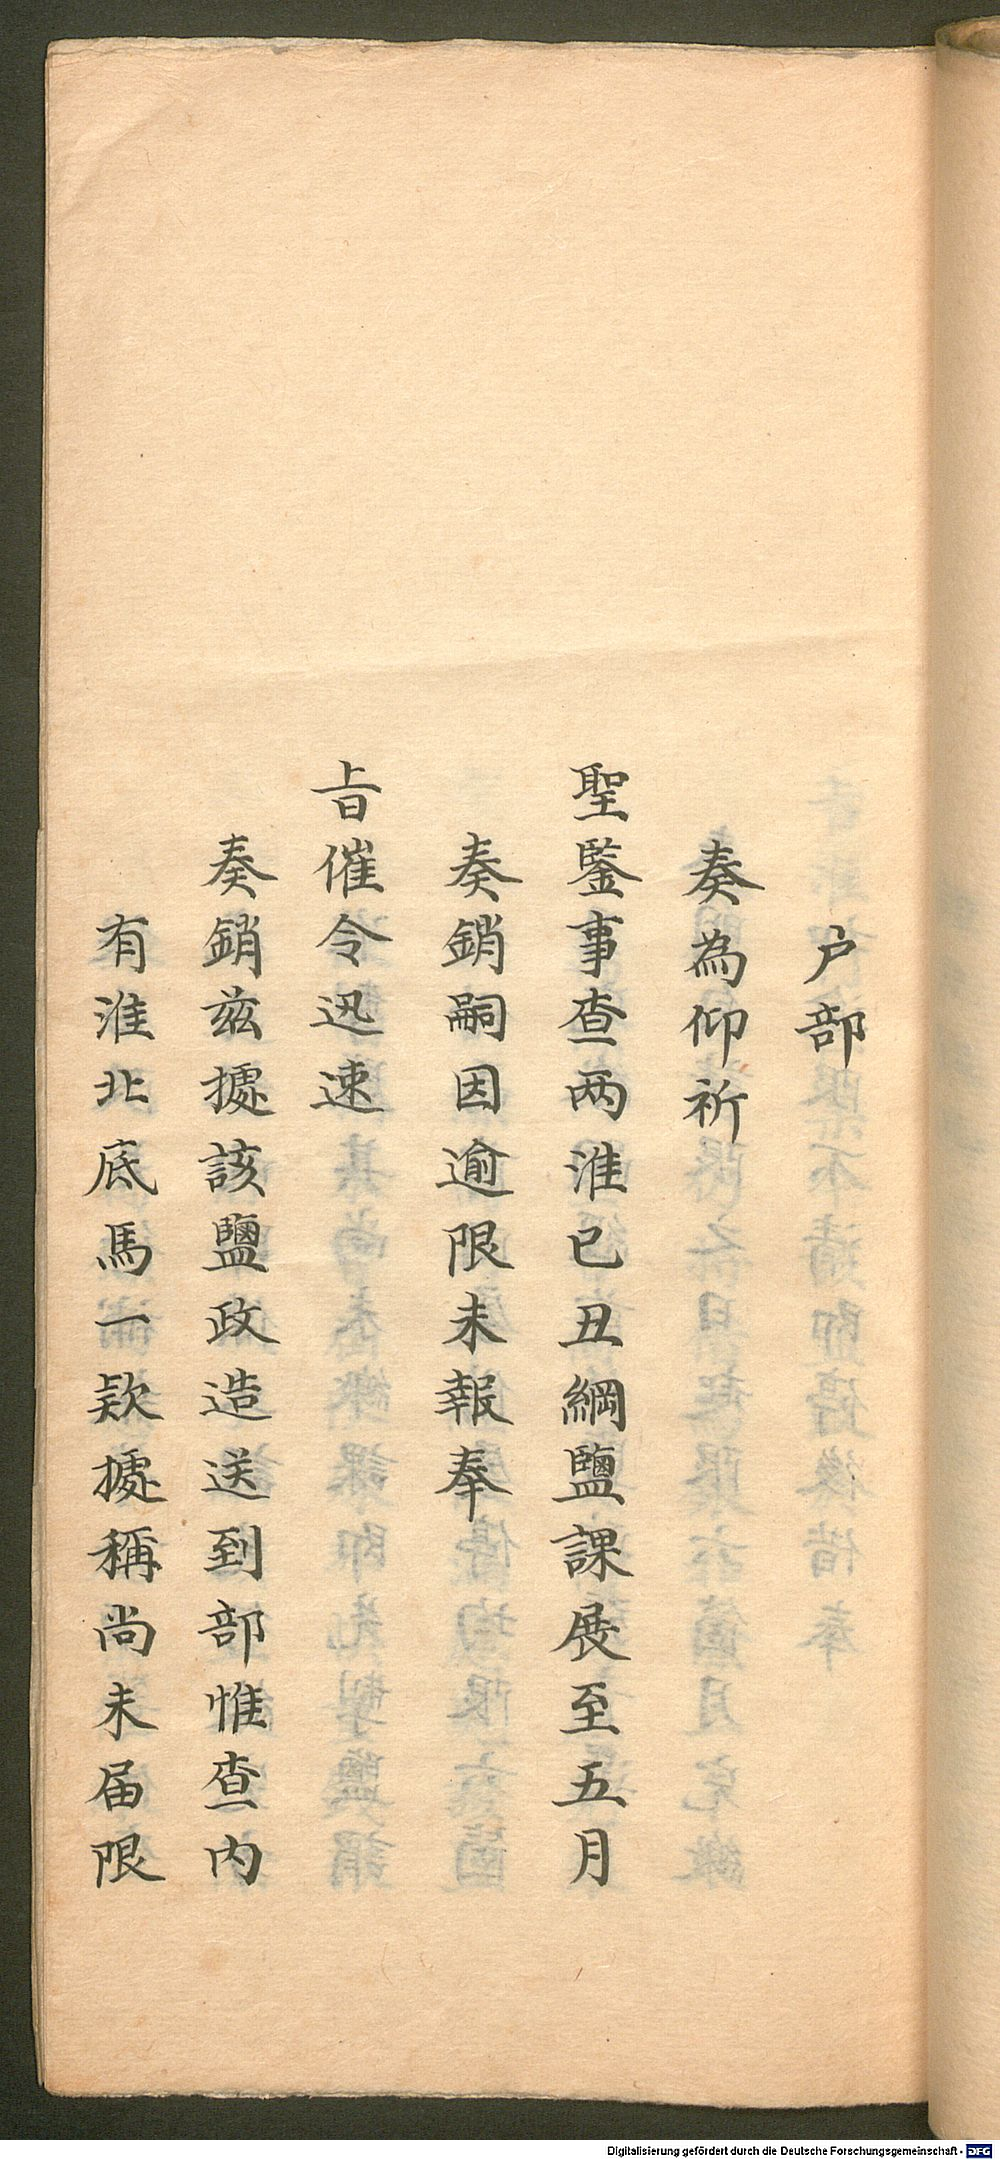 户部
奏為仰祈
聖鑒事查两淮已丑綱鹽課展至五月
奏銷嗣因逾限未報奉
旨催令迅速
奏銷兹據該鹽政造送到部惟查内
有淮北底馬一欵據稱尚未届限
Digitalisierung gefördert durch die Deutsche Forschungsgemeinschaft - DFG